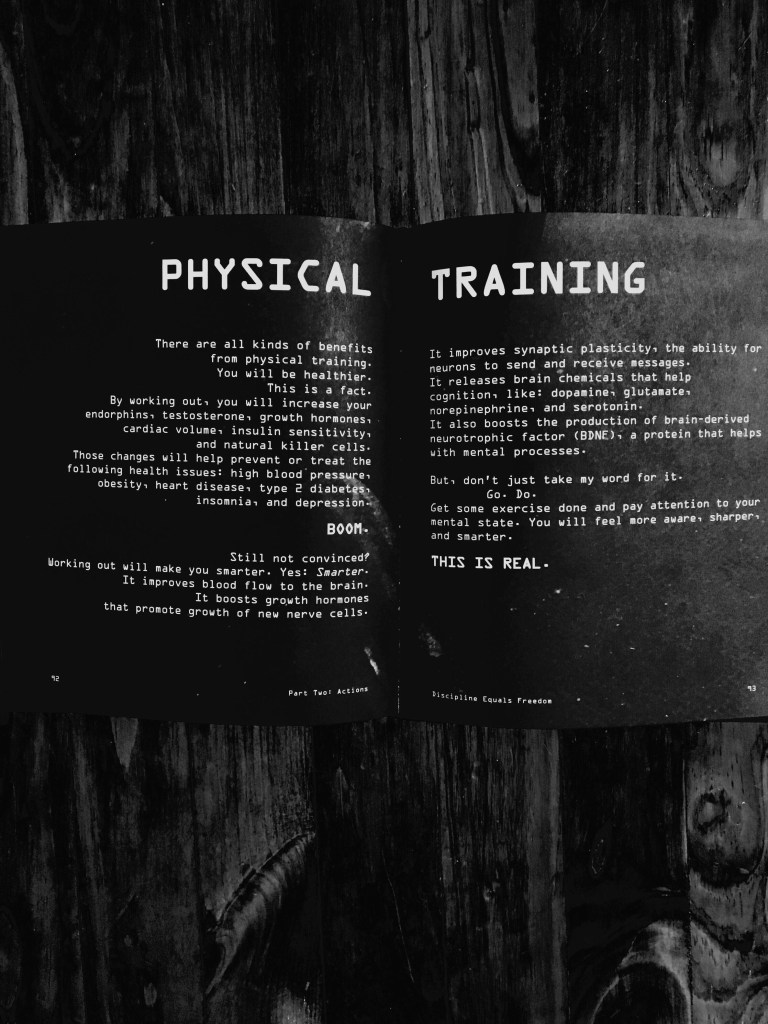 PHYSICAL
There are all kinds of benefits
from physical training.
You will be healthier.
This is a fact.
By working out, you will increase your
endorphins, testosterone, growth hormones,
cardiac volume, insulin sensitivity,
and natural killer cells.
Those changes will help prevent or treat the
following health issues: high blood pressure,
obesity, heart disease, type 2 diabetes,
insomnia, and depression.
BOOM.
Still not convinced?
Working out will make you smarter. Yes: Smarter.
It improves blood flow to the brain.
It boosts growth hormones
that promote growth of new nerve cells.
92
Part Two: Actions
TRAINING
It improves synaptic plasticity, the ability for
neurons to send and receive messages.
It releases brain chemicals that help
cognition, like: dopamine, glutamate,
norepinephrine, and serotonin.
It also boosts the production of brain-derived
neurotrophic factor (BDNE), a protein that helps
with mental processes.
But, don't just take my word for it.
Go. Do.
Get some exercise done and pay attention to your
mental state. You will feel more aware, sharper,
and smarter.
THIS IS REAL.
Discipline Equals Freedom
93